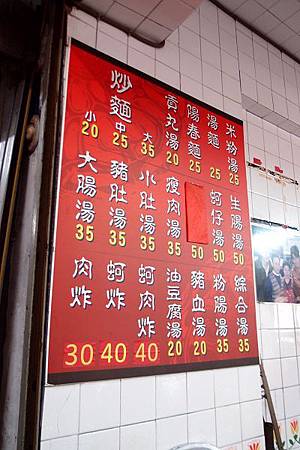 炒麵 小20 中25 大35
貢丸湯 20
陽春麵 25
湯麵 25
米粉湯 25
大腸湯 35
豬肚湯 35
小肚湯 35
瘦肉湯 50
蚵仔湯 50
生腸湯 50
肉炸 30
蚵炸 40
蚵肉炸 40
油豆腐湯 20
豬血湯 20
粉腸湯 35
綜合湯 35